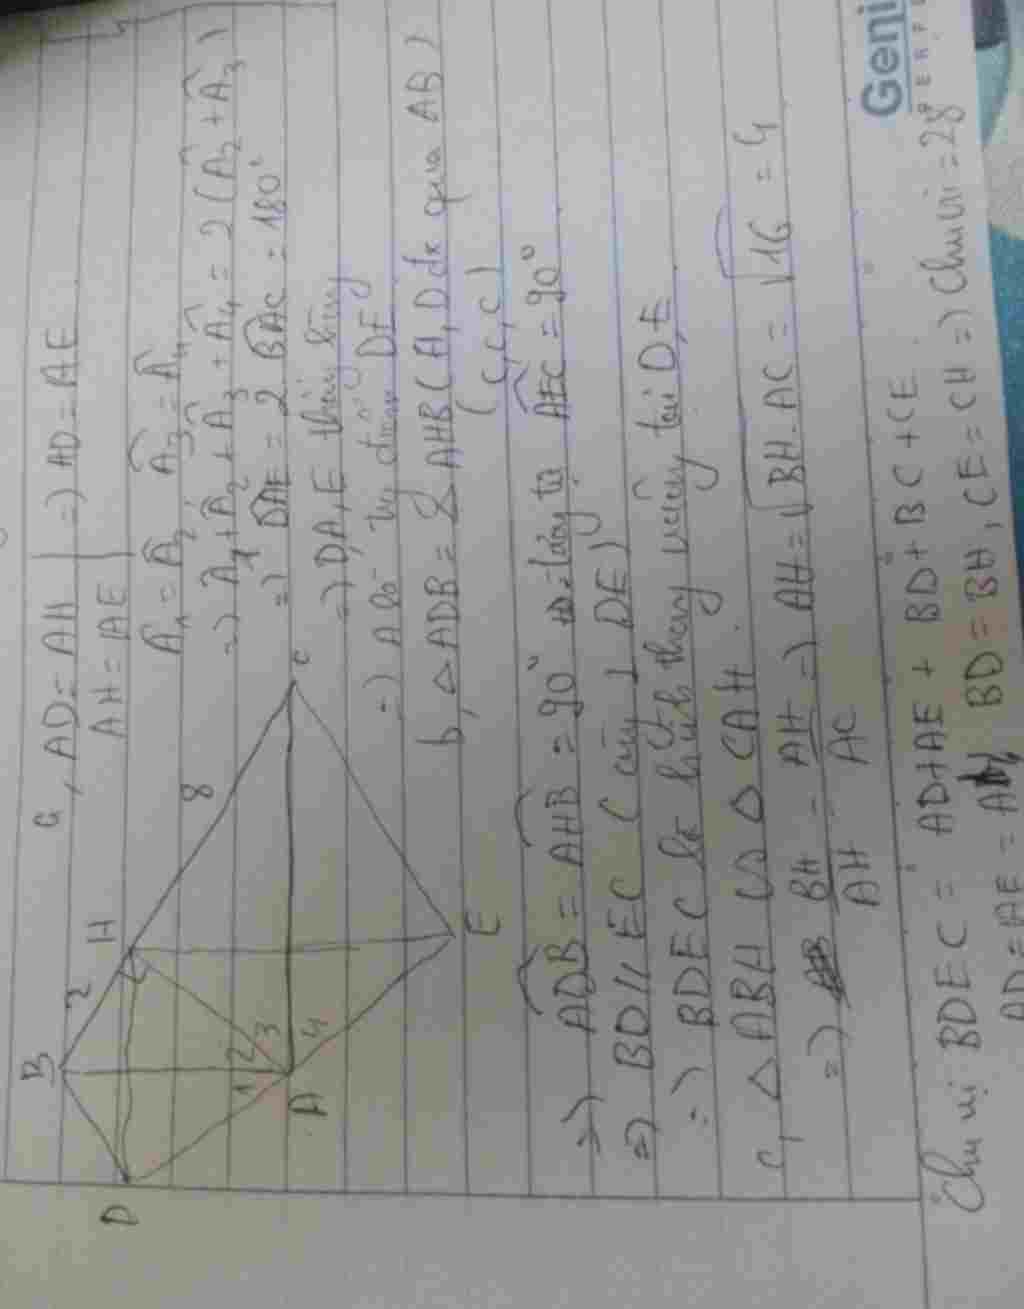 a, AD = AH
AH = AE
=> AD = AE
Â1 = Â2, Â3 = Â4
=> Â1 + Â2 + Â3 + Â4 = 2(Â2 + Â3)
=> DAE = 2 BAC = 180°
=> D,A,E thẳng hàng
=> A là tr đ đoạn DE
B
2
H
8
D
1 2 3 4
A
C
E
b, △ADB = △AHB (A, D đx qua AB)
(c,c,c)
=> ADB = AHB = 90° tương tự AEC = 90°
=> BD // EC (cùng ⊥ DE)
=> BDEC là hình thang vuông tại D,E
c, △ABH ∽ △CAH
=> BH/AH = AH/AC => AH = √BH.AC = √16 = 4
Chu vi BDEC = AD+AE + BD+BC+CE
AD = AE = AH, BD = BH, CE = CH => Chu vi = 28
Geni
PERFE